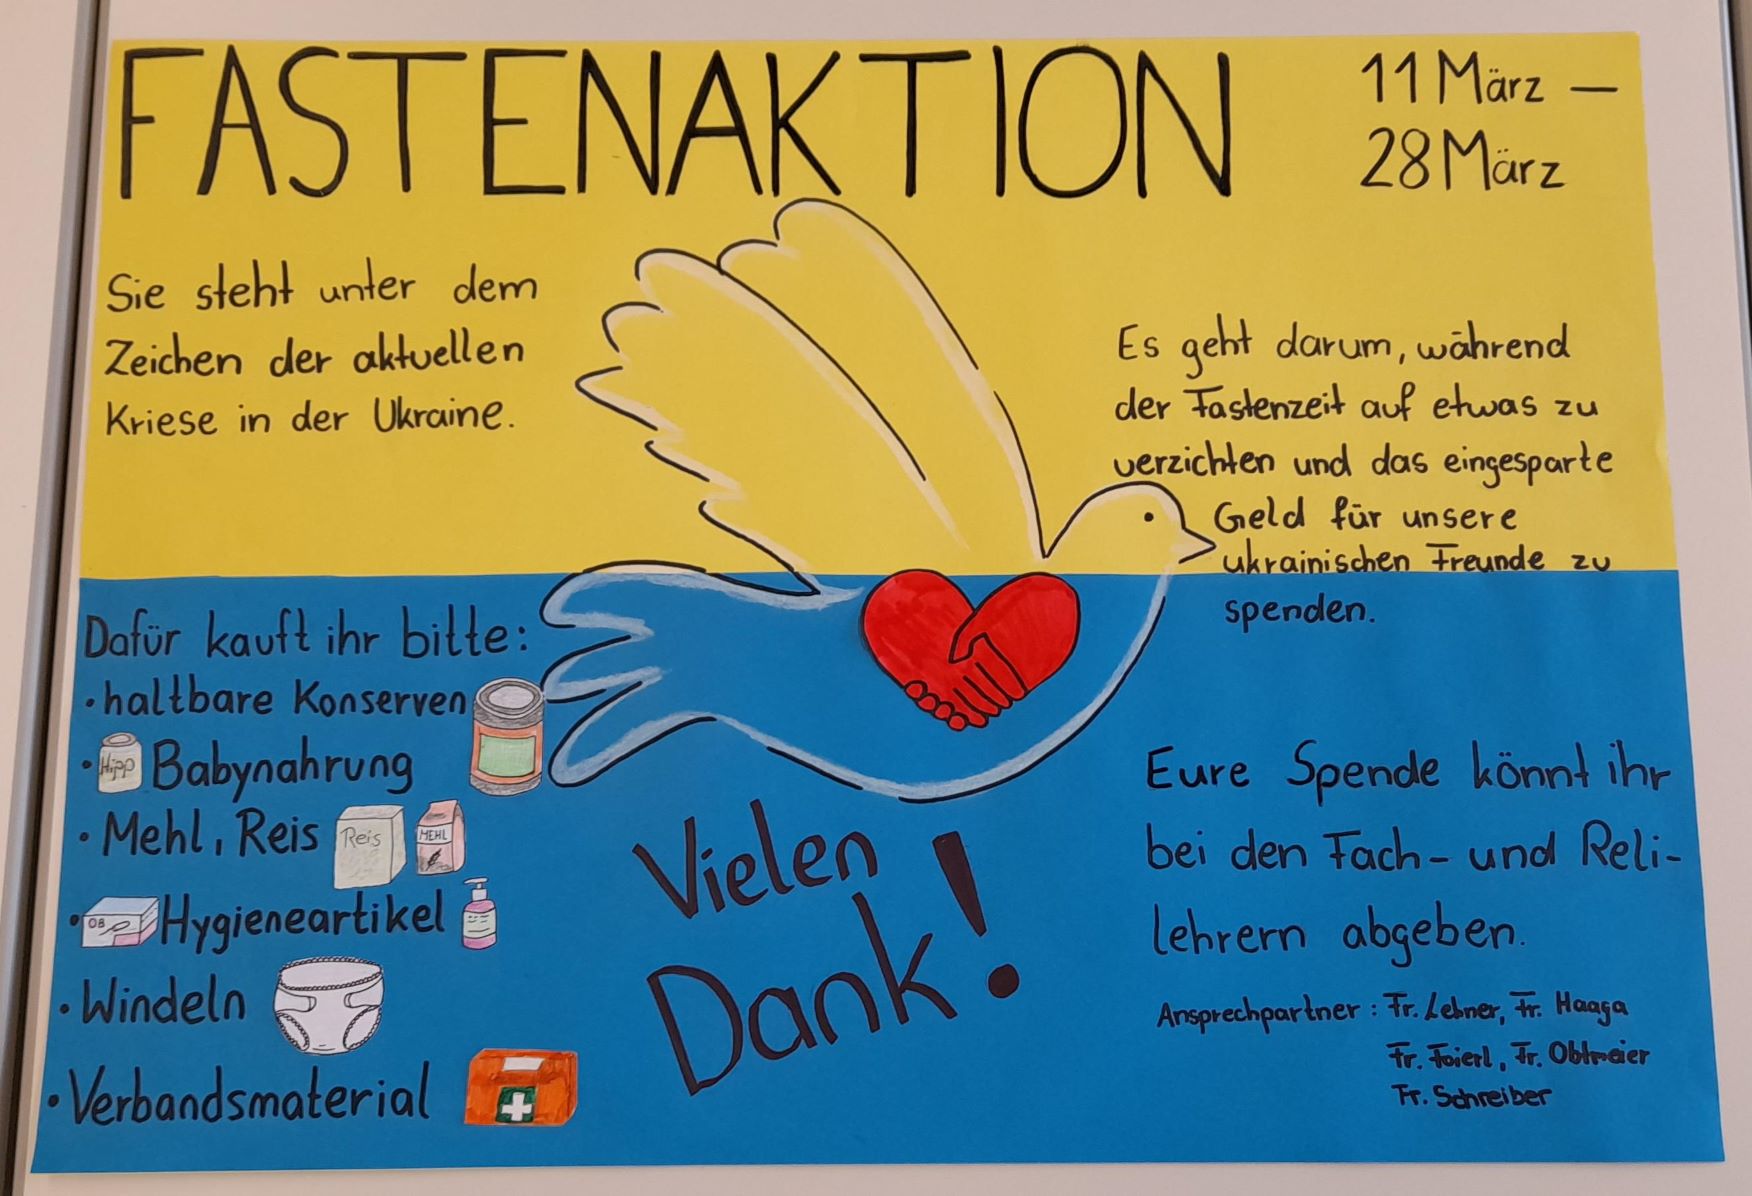 FASTENAKTION
11 März –
28 März
Sie steht unter dem
Zeichen der aktuellen
Kriese in der Ukraine.
Es geht darum, während
der Fastenzeit auf etwas zu
verzichten und das eingesparte
Geld für unsere
ukrainischen Freunde zu
spenden.
Dafür kauft ihr bitte:
· haltbare Konserven
· Hipp Babynahrung
· Mehl, Reis Reis MEHL
· OB Hygieneartikel
· Windeln
· Verbandsmaterial
Vielen
Dank!
Eure Spende könnt ihr
bei den Fach- und Reli-
lehrern abgeben.
Ansprechpartner: Fr. Lehner, Fr. Haaga
Fr. Foierl, Fr. Obtmeier
Fr. Schreiber